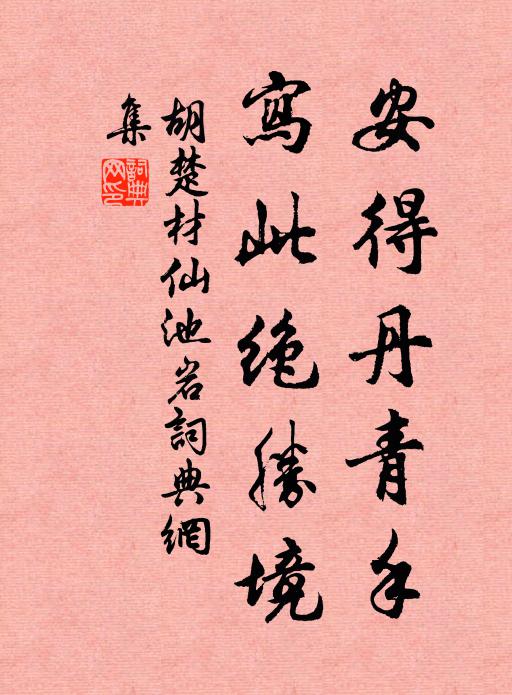 安得丹青手
寫此绝勝境
胡楚材仙池岩詞典網
集
詞典
网印